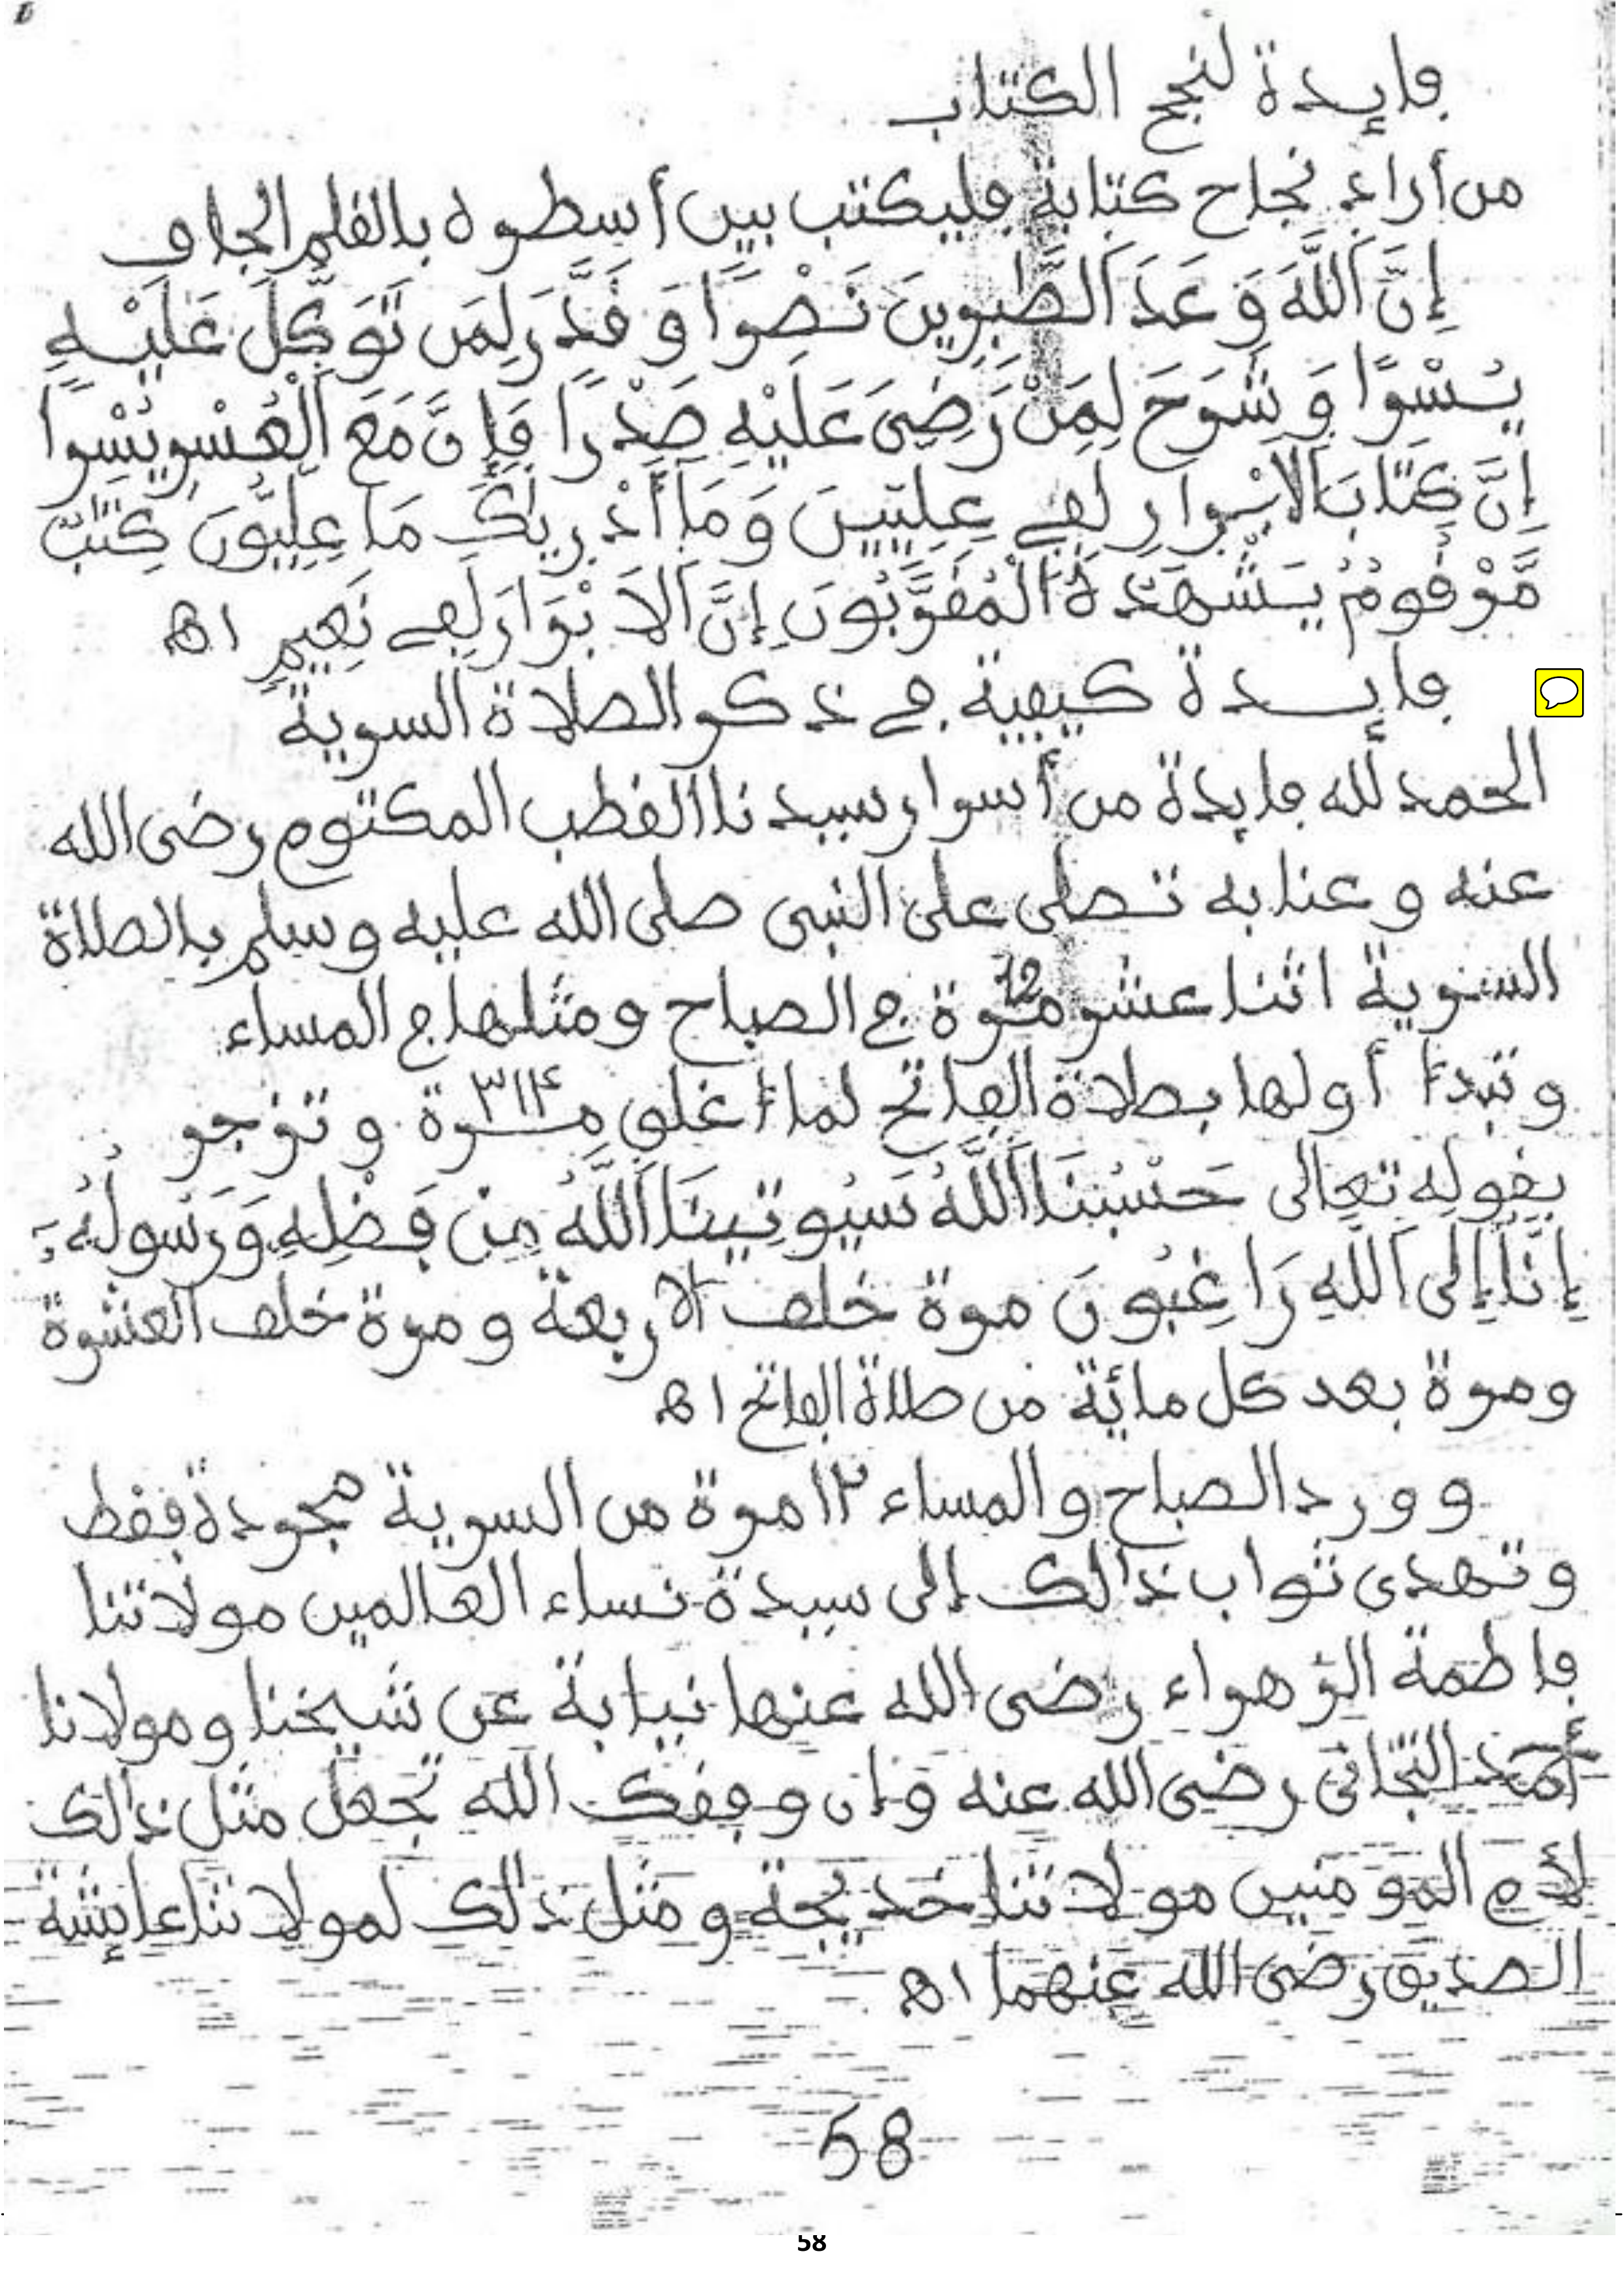 فايدة لنجح الكتاب
من أراد نجاح كتابة فليكتب بين أسطره بالقلم الجاف
إِنَّ اَللَّهَ وَعَدَ اَلصَّٰبِرِينَ نَصْرًا وَقَدَّرَ لِمَن تَوَكَّلَ عَلَيْهِ
يُسْرًا وَشَرَحَ لِمَنْ رَضِىَ عَلَيْهِ صَدْرًا فَإِنَّ مَعَ اَلْعُسْرِ يُسْرًا
إِنَّ كِتَٰابَ اَلَابْرارِ لَفِے عِلِّيِّينَ وَمَا أَدْرِيٰكَ مَا عِلِّيُّونَ كِتَٰبٌ
مَّرْقُومٌ يَشْهَدُهُ اَلْمُقَرَّبُونَ إِنَّ اَلَابْرَارَ لَفِے نَعِيمٍ اه
فايدة كيفية في ذكر الصلاة السرية
الحمد لله فايدة من أسرار سيدنا القطب المكتوم رضى الله
عنه وعنا به تصلى على النبى صلى الله عليه وسلم بالصلاة
السرية اثنا عشر مرة 12 في الصباح ومثلها في المساء
وتبدأ أولها بصلاة الفاتح لما أغلق ٣١٤ مرة وتزجر
بقوله تعالى حَسْبُنَا اَللَّهُ سَيُوتِينَا اَللَّهُ مِن فَضْلِهِ وَرَسُولُهُ
إِنَّا إِلَى اَللَّهِ رَاغِبُونَ مرة خلف الاربعة ومرة خلف العشرة
ومرة بعد كل مائة من صلاة الفاتح اه
وورد الصباح والمساء ١٢ مرة من السرية مجردة فقط
وتهدى ثواب ذالك إلى سيدة نساء العالمين مولاتنا
فاطمة الزهراء رضى الله عنها نيابة عن شيخنا ومولانا
أحمد التجانى رضى الله عنه وإن وفقك الله تجعل مثل ذالك
لأم المومنين مولاتنا خديجة ومثل ذالك لمولاتنا عايشة
الصديق رضى الله عنهما اه
58
58